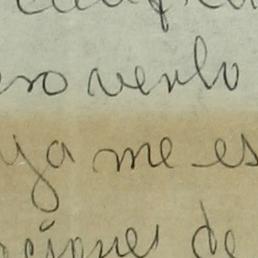 ero verlo
ya me es
ciones de